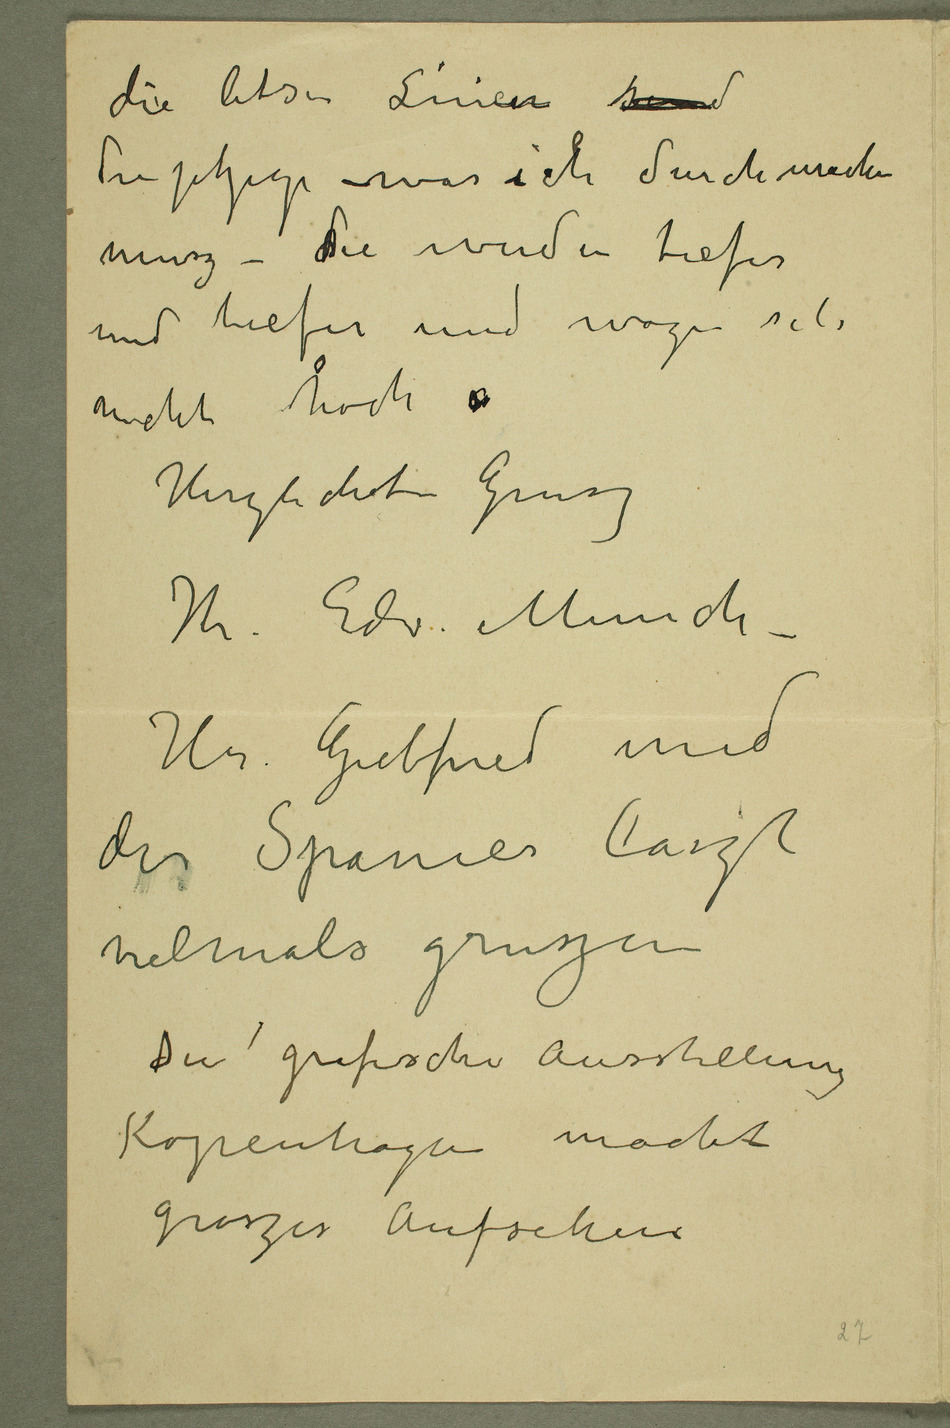 die letzen Linien s̶i̶n̶d̶
die jetzige – was ich durchmachen
musz – die werden tiefer
und tiefer und wogen
nicht hoch
Herzlichsten Grusz
Ihr. Edv. Munch –
Hr. Gjebfried und
der Spanier laszt
vielmals gruszen
Die grafische Ausstellung
Kopenhagen macht
groszes Aufsehen
27